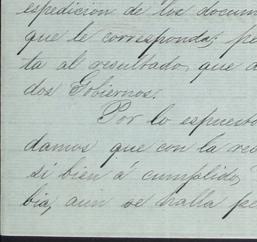 espedicion de los docum
que le corresponda; pe
ta al resultado, que d
dos Gobiernos.
Por lo espuesto
damos que con la res
si bien á cumplido,
bia, aun se halla pe